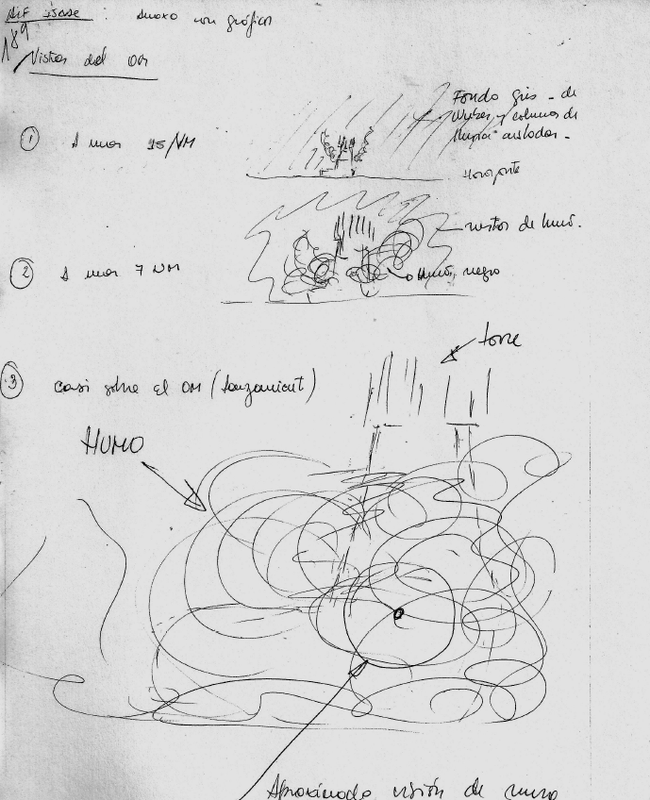 Isase : Anexo con gráficos
189
Vistas del OM
① A unas 15/NM
Fondo gris - de
nubes y columnas de
lluvia aisladas -
Horizonte
restos de humo.
② A unas 7 NM
Humo negro
torre
③ casi sobre el OM (lanzamient)
HUMO
Aproximada visión de